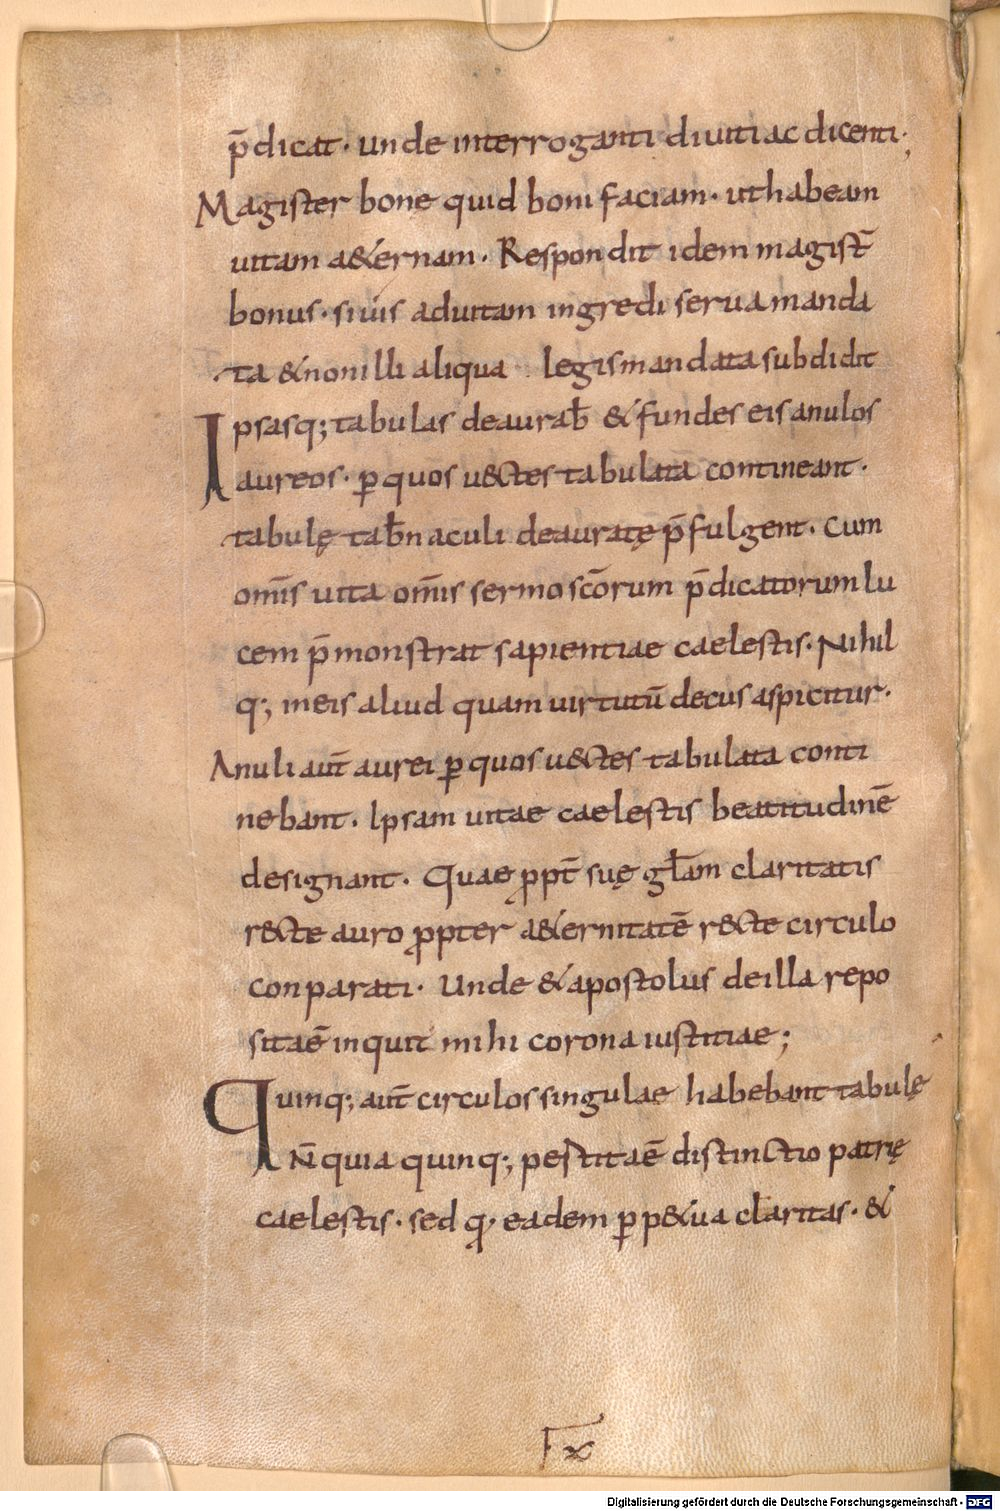 p̄dicat· unde interroganti diuiti ac dicenti;
Magister bone quid boni faciam· ut habeam
uitam a&ernam· Respondit idem magist̄
bonus· si uis ad uitam ingredi serua manda
ta & non illi aliqua legis mandata subdidit
Ipsasq; tabulas deaurab̄ & fundes eis anulos
aureos· ꝑ quos u&ctes tabulata contineant·
tabulę tab̄naculi deauratę p̄fulgent· Cum
om̄is uita om̄is sermo sc̄orum p̄dicatorum lu
cem p̄monstrat sapientiae caelestis· Nihil
q; in eis aliud quam uirtutū decus aspicitur·
Anuli aut̄ aurei ꝑ quos u&ctes tabulata conti
nebant· Ipsam uitae caelestis beatitudinē
designant· Quae ꝓpt̄ suę gl̄am claritatis
r&cte auro ꝓpter a&ernitatē r&cte circulo
conparati· Unde & apostolus de illa repo
sita ē inquit mihi corona iustitiae;
Quinq; aut̄ circulos singulae habebant tabulę
N̄ quia quinq; pestita ē distinctio patrię
caelestis· sed q· eadem ꝑp&ua claritas· &
Digitalisierung gefördert durch die Deutsche Forschungsgemeinschaft - DFG